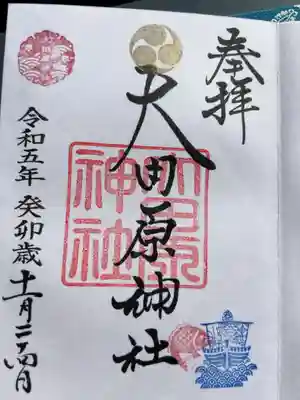 奉拝
大田原神社
大田原神社
令和五年 癸卯歳 十一月二十四日